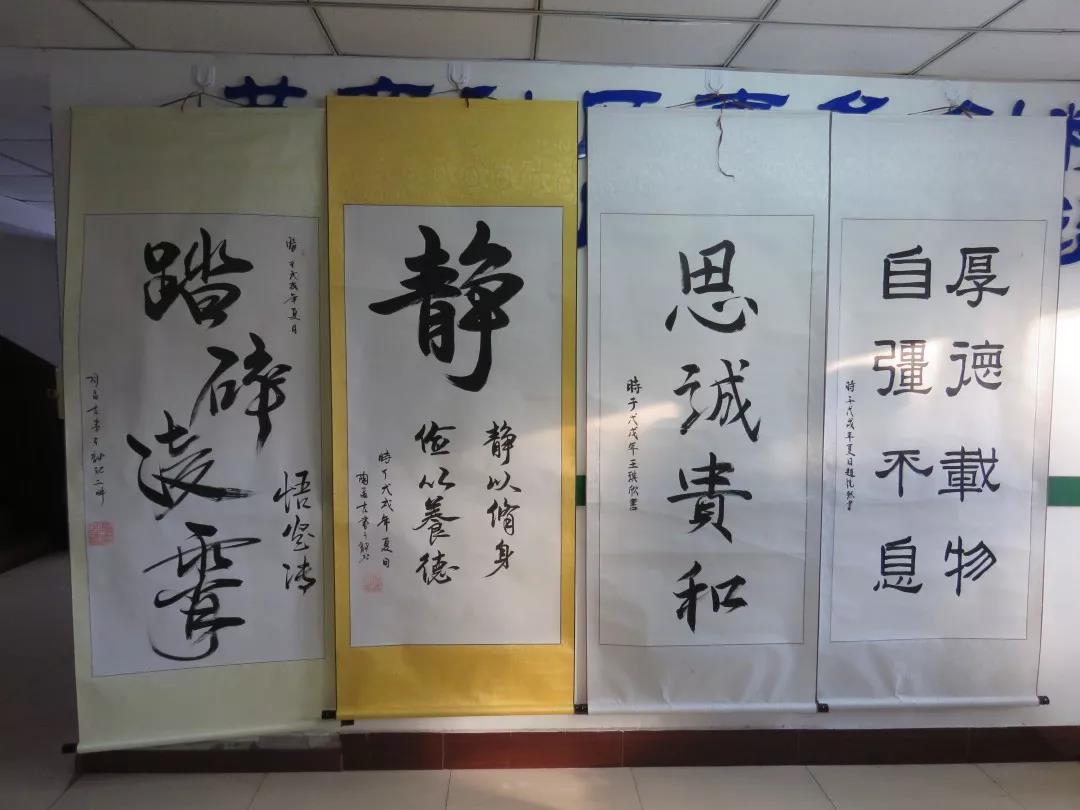 時于戊戌年夏日
踏碎凌霄
悟空传
静
静以脩身
俭以養德
時于戊戌年夏日
思誠貴和
時于戊戌年王琪欣書
厚德載物
自彊不息
時于戊戌年夏日趙